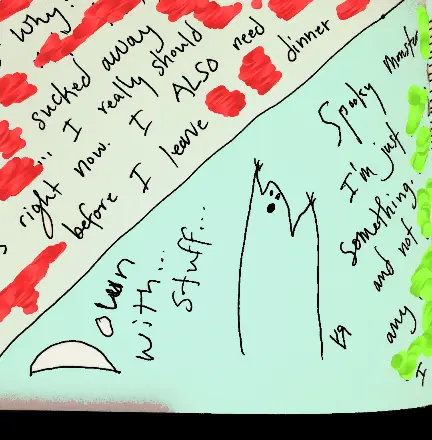 Why?
sucked away
... I really should
right now. I ALSO need
before I leave dinner
Down
with...
stuff...
Spooky Monster
I'm just
something.
and not
any
I